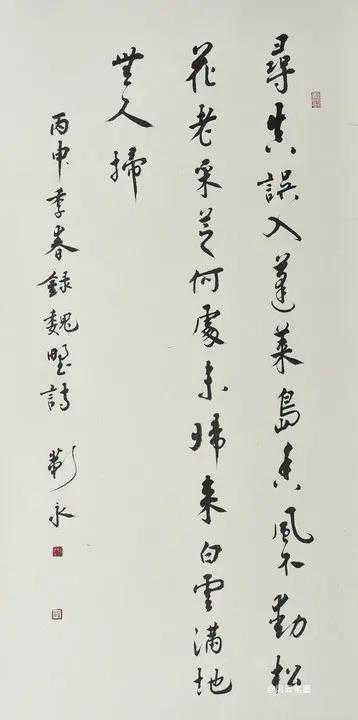 尋真誤入蓬萊島香風不動松
花老采芝何處未歸來白雲滿地
無人掃
丙申季春錄魏野詩 劉永